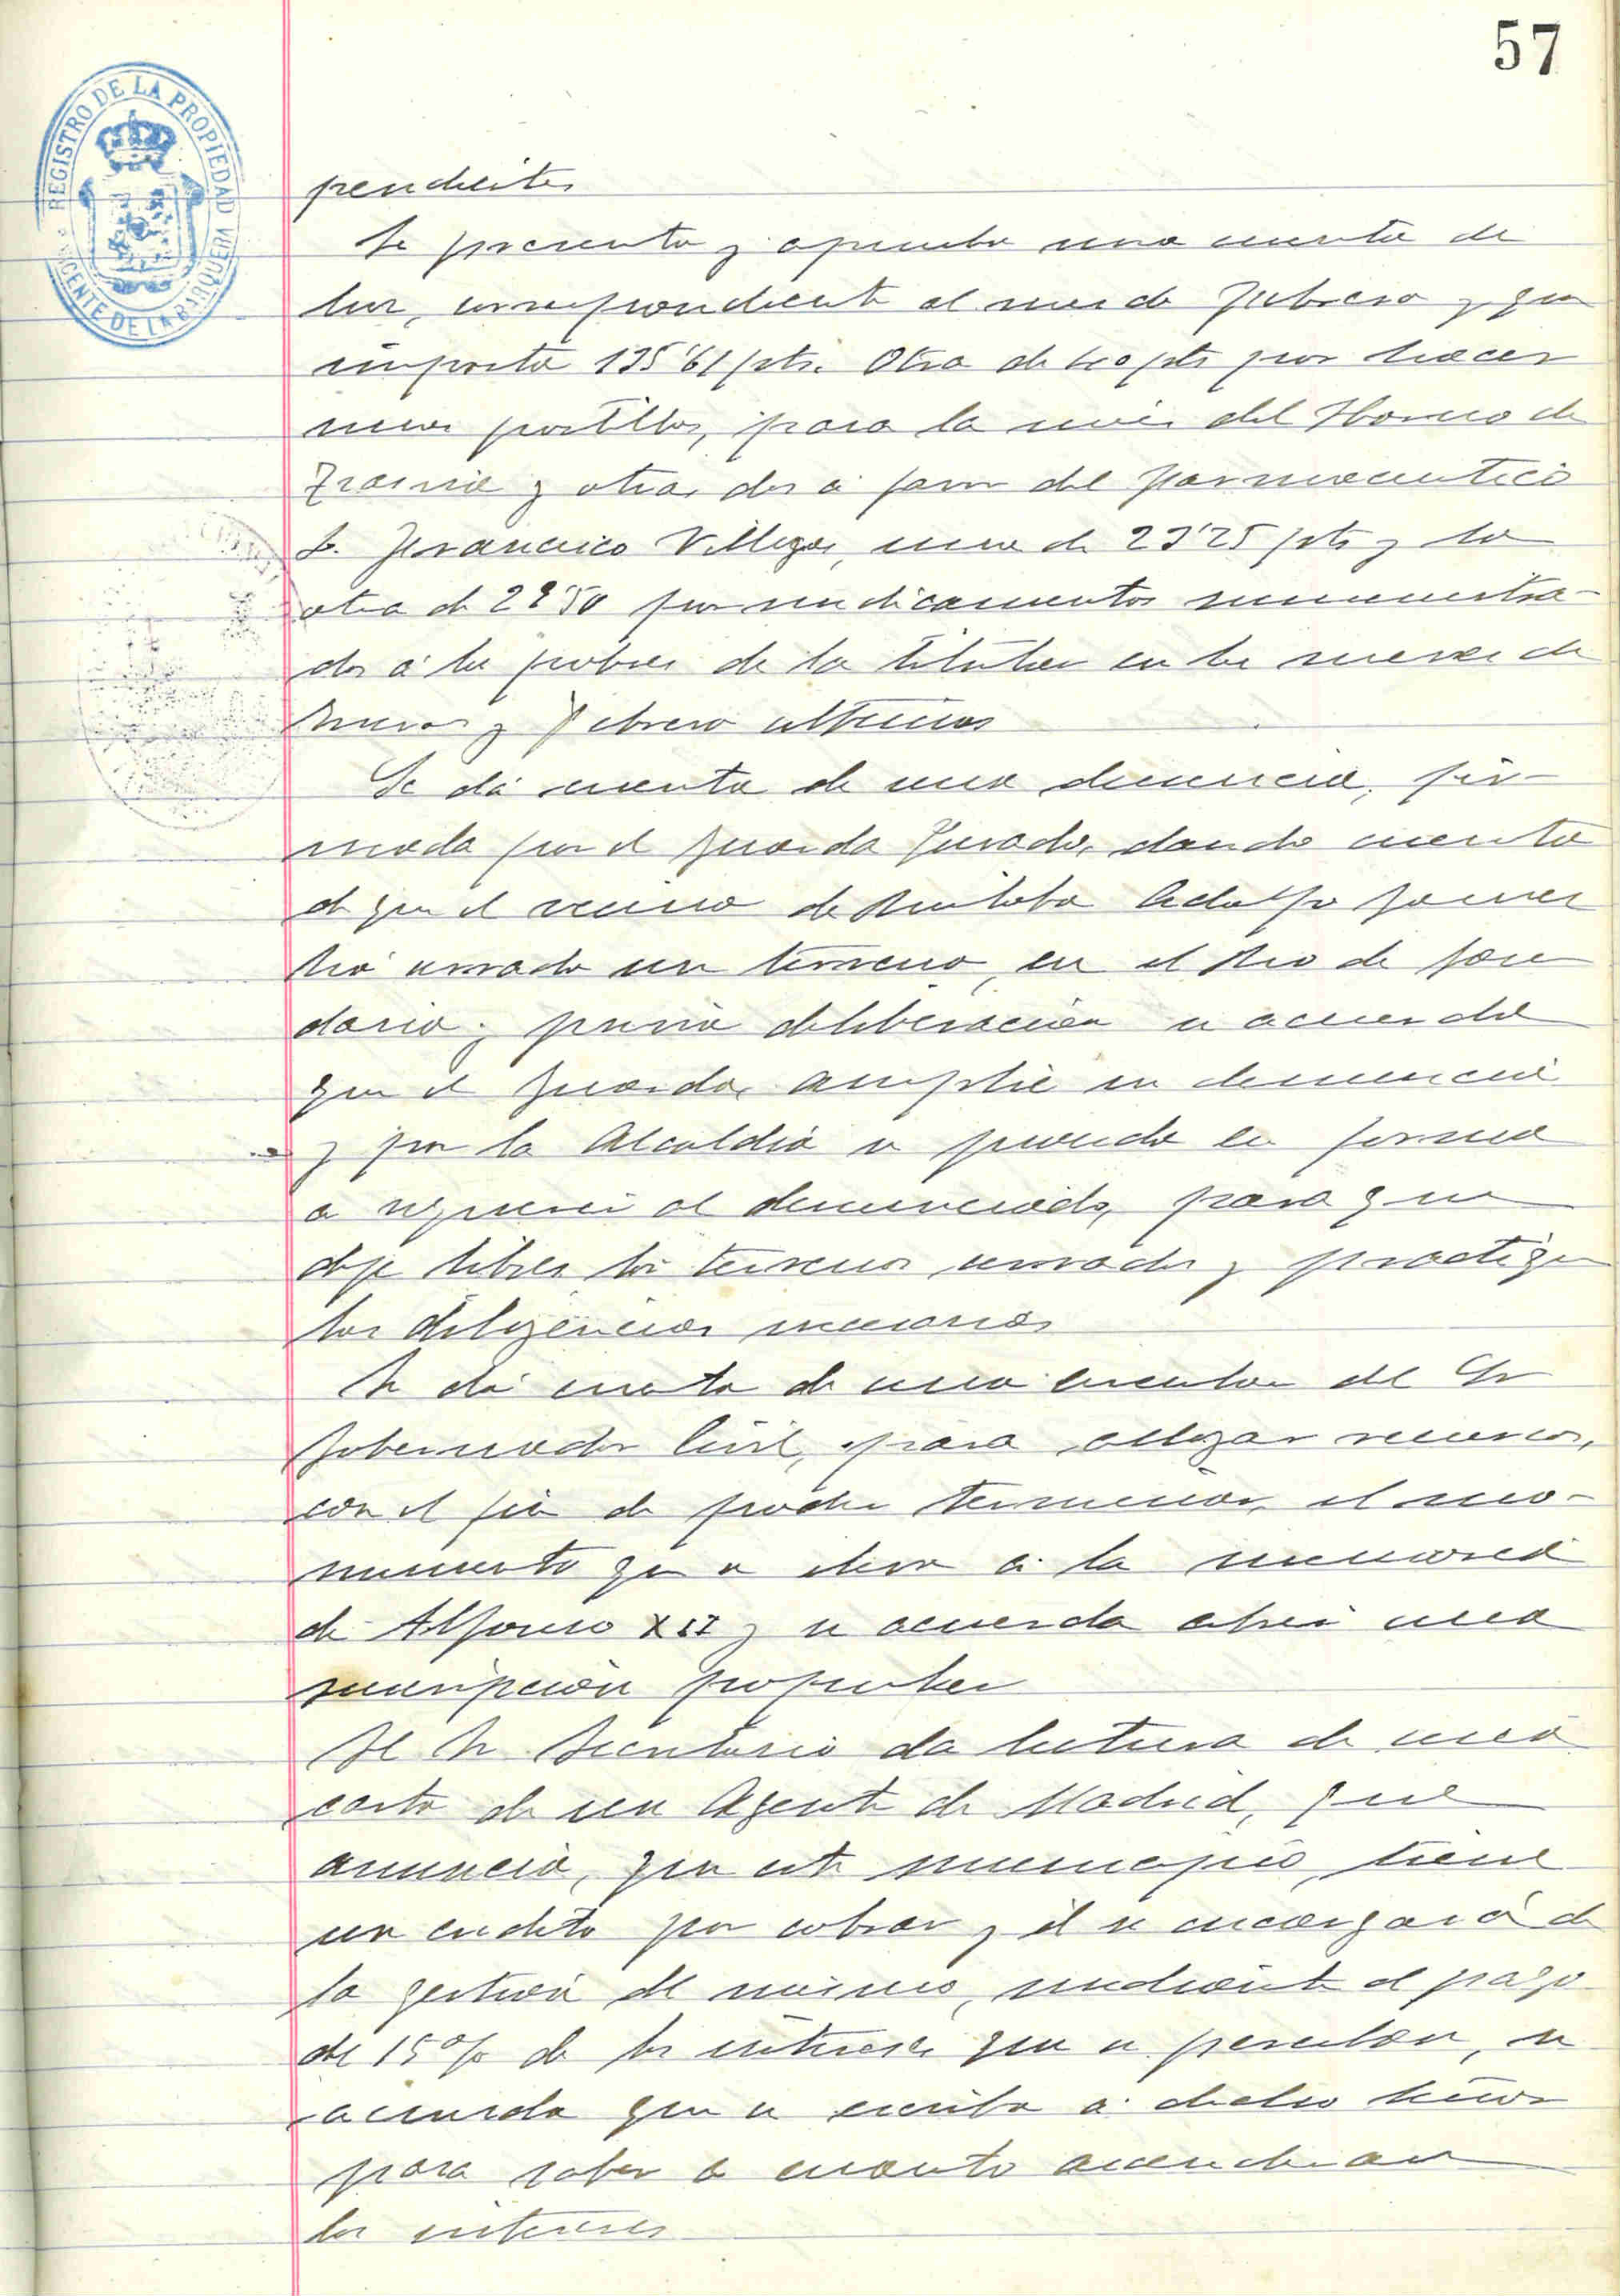 57
REGISTRO DE LA PROPIEDAD
VICENTE DE LA BARQUERA
pendientes
Se presenta y aprueba una cuenta de
luz, correspondiente al mes de Febrero y que
importa 135'61 pts. Otra de pts por hacer
unos portillos, para la del de
y otras dos a favor del farmaceutico
D. Francisco Villegas, una de 23'25 pts y la
otra de 28'50 por medicamentos suministra-
dos á los pobres de la titular en los meses de
Enero y Febrero ultimos
Se dá cuenta de una denuncia, fir-
mada por el Guarda Jurado, dando cuenta
de que el vecino de Adolfo Gomez
há cerrado un terreno, en el de
y previa deliberación se acuerda
que el Guarda, amplie su denuncia
y por la Alcaldia se proceda en forma
a requerir al denunciado, para que
deje libres los terrenos cerrados y practique
las diligencias necesarias
Se dá cuenta de una circular del Sr
Gobernador Civil, para allegar recursos,
con el fin de poder terminar, el mo-
numento que se eleva á la memoria
de Alfonso XII y se acuerda abrir una
suscripción popular
El Sr Secretario da lectura de una
carta de un Agente de Madrid, que
anuncia, que este municipio, tiene
un credito por cobrar y él se encargará de
la gestión del mismo, mediante el pago
del 15% de los intereses que se perciban, se
acuerda que se escriba á dicho señor
para saber a cuanto ascenderan
los intereses